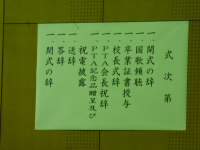 式次第
一、開式の辞
一、国歌傾聴
一、卒業証書授与
一、校長式辞
一、PTA会長祝辞
一、PTA記念品贈呈及び
祝電披露
一、送辞
一、答辞
一、閉式の辞